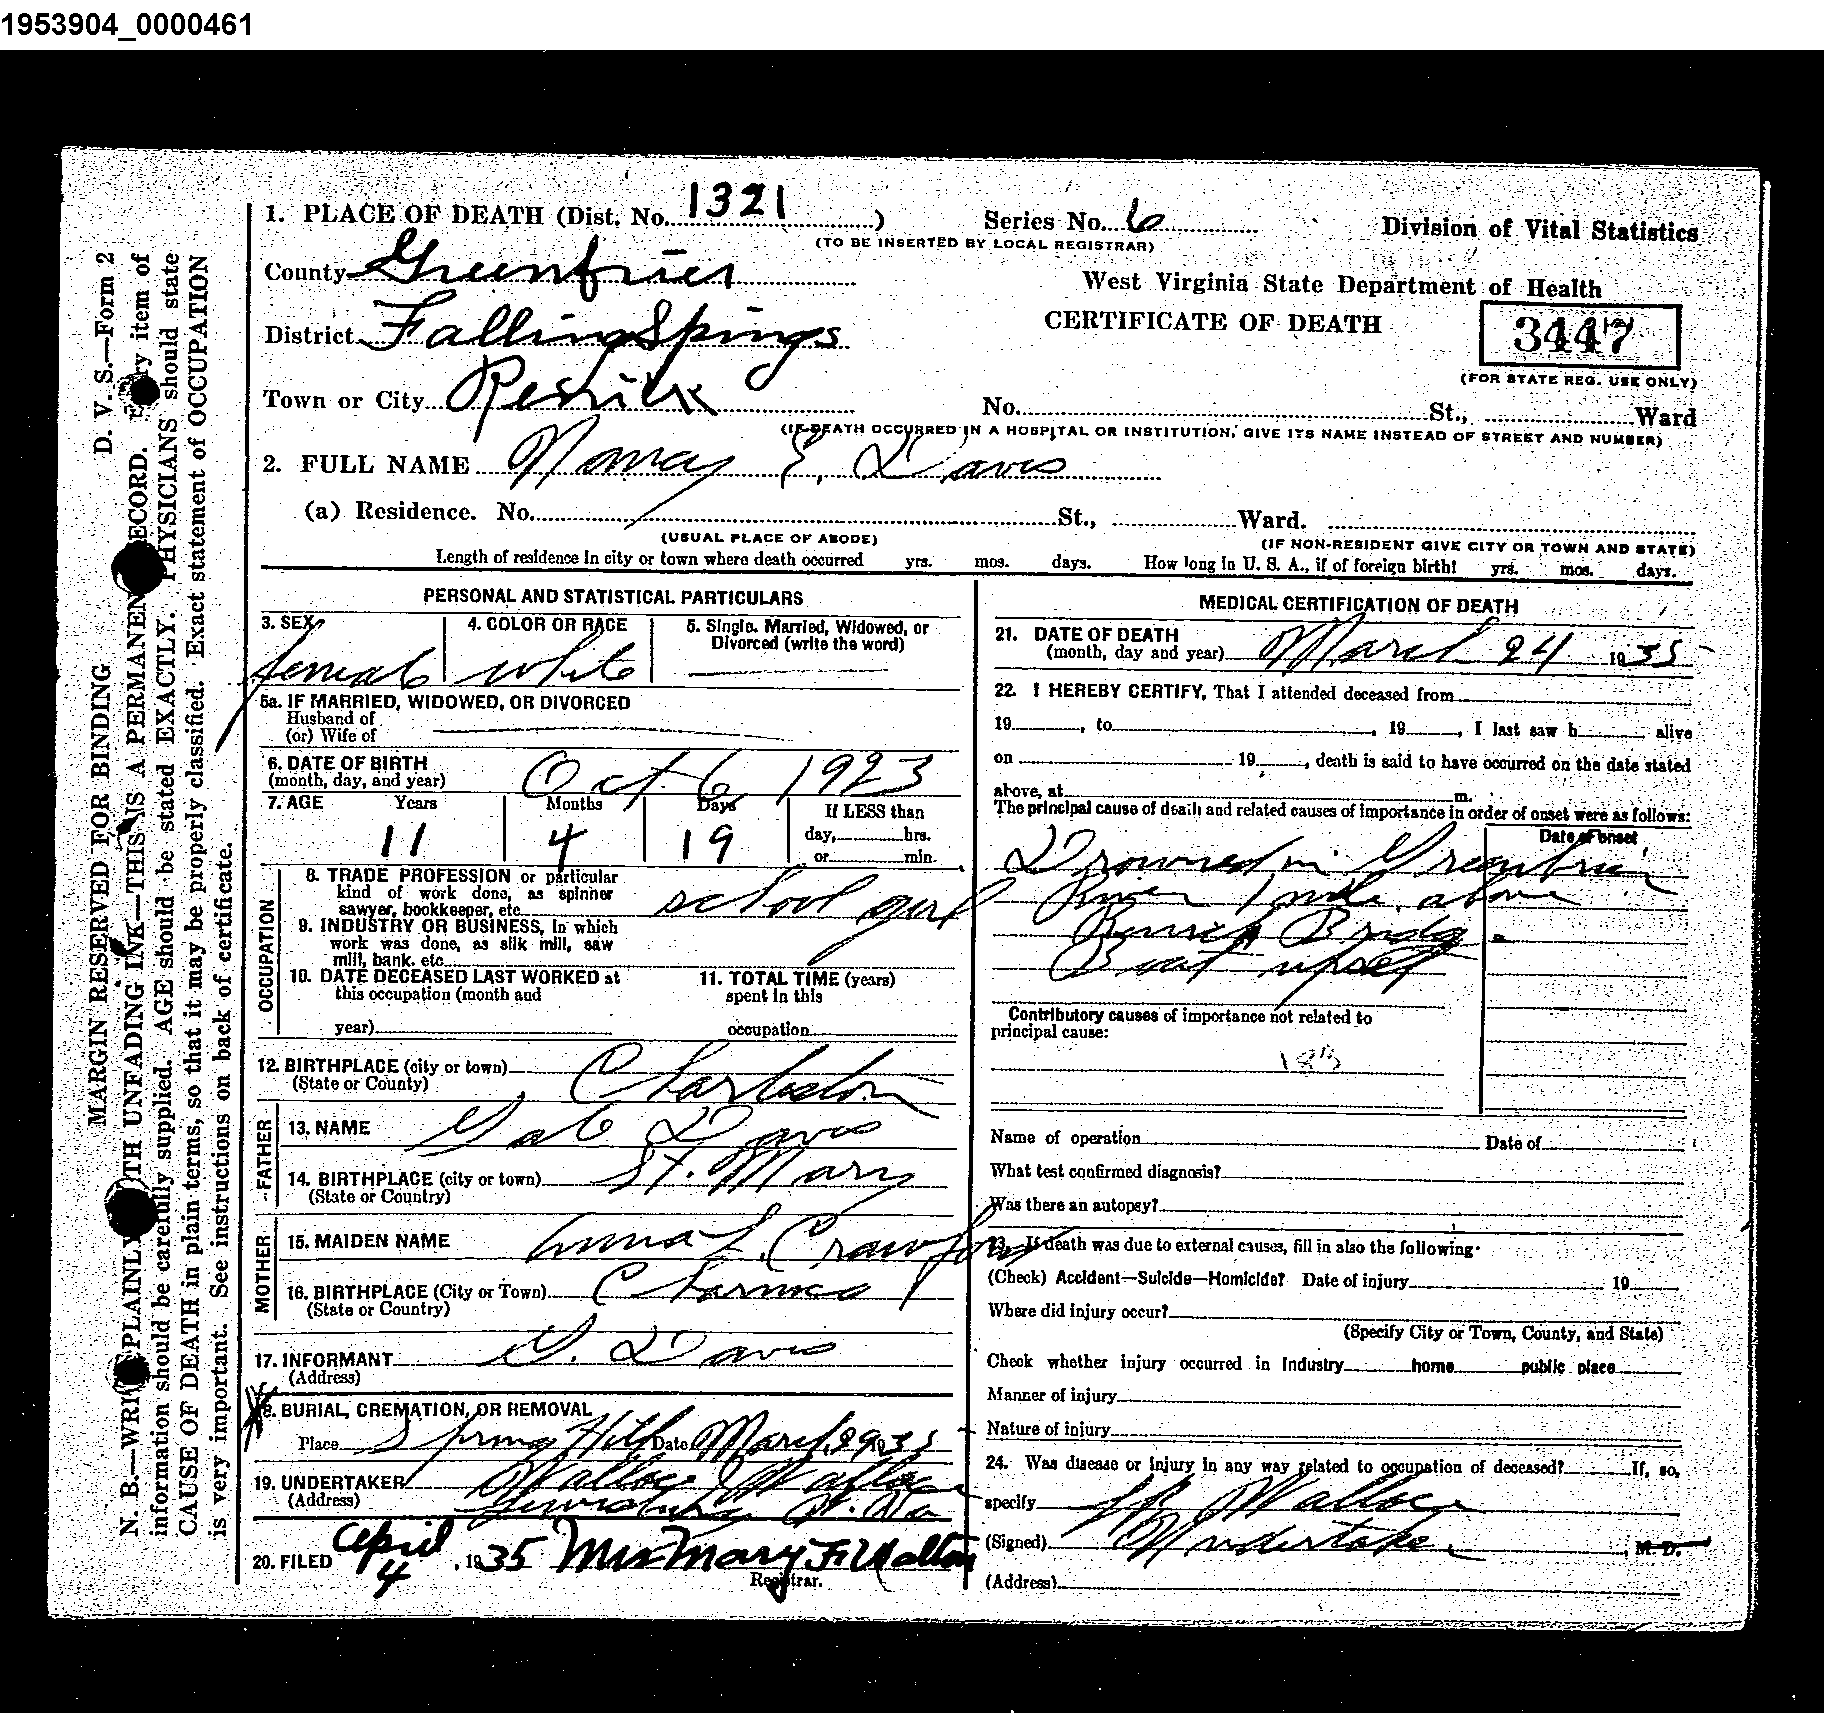 1953904_0000461
1. PLACE OF DEATH (Dist. No. 1321 )
Series No. 6
(TO BE INSERTED BY LOCAL REGISTRAR)
Division of Vital Statistics
County Greenbrier
West Virginia State Department of Health
CERTIFICATE OF DEATH
3447
(FOR STATE REG. USE ONLY)
District Falling Springs
Town or City Renick
No. St., Ward
(IF DEATH OCCURRED IN A HOSPITAL OR INSTITUTION, GIVE ITS NAME INSTEAD OF STREET AND NUMBER)
2. FULL NAME Nancy E. Davis
(a) Residence. No. St., Ward.
(USUAL PLACE OF ABODE)
(IF NON-RESIDENT GIVE CITY OR TOWN AND STATE)
Length of residence in city or town where death occurred yrs. mos. days. How long in U. S. A., if of foreign birth? yrs. mos. days.
PERSONAL AND STATISTICAL PARTICULARS
3. SEX female
4. COLOR OR RACE white
5. Single, Married, Widowed, or
Divorced (write the word)
5a. IF MARRIED, WIDOWED, OR DIVORCED
Husband of
(or) Wife of
6. DATE OF BIRTH
(month, day, and year) Oct 6 1923
7. AGE Years Months Days If LESS than
11 4 19 day, hrs.
or min.
OCCUPATION
8. TRADE PROFESSION or particular
kind of work done, as spinner
sawyer, bookkeeper, etc. school girl
9. INDUSTRY OR BUSINESS, in which
work was done, as silk mill, saw
mill, bank. etc.
10. DATE DECEASED LAST WORKED at
this occupation (month and
year)
11. TOTAL TIME (years)
spent in this
occupation
12. BIRTHPLACE (city or town) Charleston
(State or County)
FATHER
13. NAME Gab Davis
14. BIRTHPLACE (city or town) St. Mary
(State or Country)
MOTHER
15. MAIDEN NAME Anna L. Crawford
16. BIRTHPLACE (City or Town)
(State or Country)
17. INFORMANT G. Davis
(Address)
18. BURIAL, CREMATION, OR REMOVAL
Place Spring Hill Date March 29 1935
19. UNDERTAKER Wallace & Wallace
(Address) Lewisburg W. Va
20. FILED April 4, 1935 Mrs Mary F. Walton
Registrar.
MEDICAL CERTIFICATION OF DEATH
21. DATE OF DEATH
(month, day and year) March 24 1935
22. I HEREBY CERTIFY, That I attended deceased from
19 , to , 19 , I last saw h alive
on 19 , death is said to have occurred on the date stated
above, at m.
The principal cause of death and related causes of importance in order of onset were as follows:
Date of onset
Drowned in Greenbrier
River 1 mile above
Renick Bridge
Boat upset
Contributory causes of importance not related to
principal cause:
183
Name of operation Date of
What test confirmed diagnosis?
Was there an autopsy?
23. If death was due to external causes, fill in also the following:
(Check) Accident—Suicide—Homicide? Date of injury 19
Where did injury occur?
(Specify City or Town, County, and State)
Check whether injury occurred in Industry home public place
Manner of injury
Nature of injury
24. Was disease or injury in any way related to occupation of deceased? If, so,
specify Wallace
(Signed) Undertaker , M. D.
(Address)
D. V. S.—Form 2
MARGIN RESERVED FOR BINDING
N. B.—WRITE PLAINLY WITH UNFADING INK—THIS IS A PERMANENT RECORD. Every item of
information should be carefully supplied. AGE should be stated EXACTLY. PHYSICIANS should state
CAUSE OF DEATH in plain terms, so that it may be properly classified. Exact statement of OCCUPATION
is very important. See instructions on back of certificate.